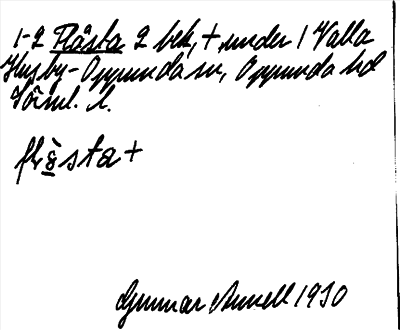 1-2 Flästa 2 bek, +, under 1 Valla
Husby-Oppunda sn, Oppunda hd
Söml. l.
flä̀sta +
Gunnar Annell 1930